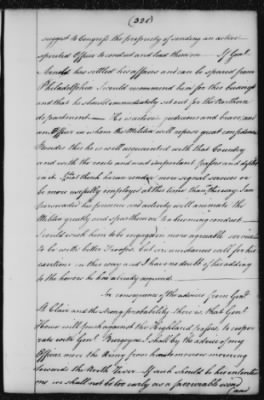 (325)
suggest to Congress the propriety of sending an active
spirited Officer to conduct and lead them on. If Genl.
Arnold has settled his affairs and can be spared from
Philadelphia I would recommend him for this business
and that he should immediately set out for the Northern
department. He is active judicious and brave, and
an Officer in whom the Militia will repose great confidence
Besides this he is well acquainted with that Country
and with the routs and most important passes and defiles
in it. I do not think he can render more signal services or
be more usefully employed at this time than this way. I am
persuaded his presence and activity will animate the
Militia greatly and spur them on to a becoming conduct
I could wish him to be engaged in more agreeable service
to be with better Troops, but circumstances call for his
exertions in this way and I have no doubt of his adding
to the honors he has already acquired.
In consequence of the advices from Genl.
St. Clair and the strong probability there is that Genl.
Howe will push against the Highland passes to cooperate
with Genl. Burgoyne I shall by the advice of my
Officers move the Army from hence to morrow morning
towards the North River. If such should be his intention
we shall not be too early as a favourable wind
and